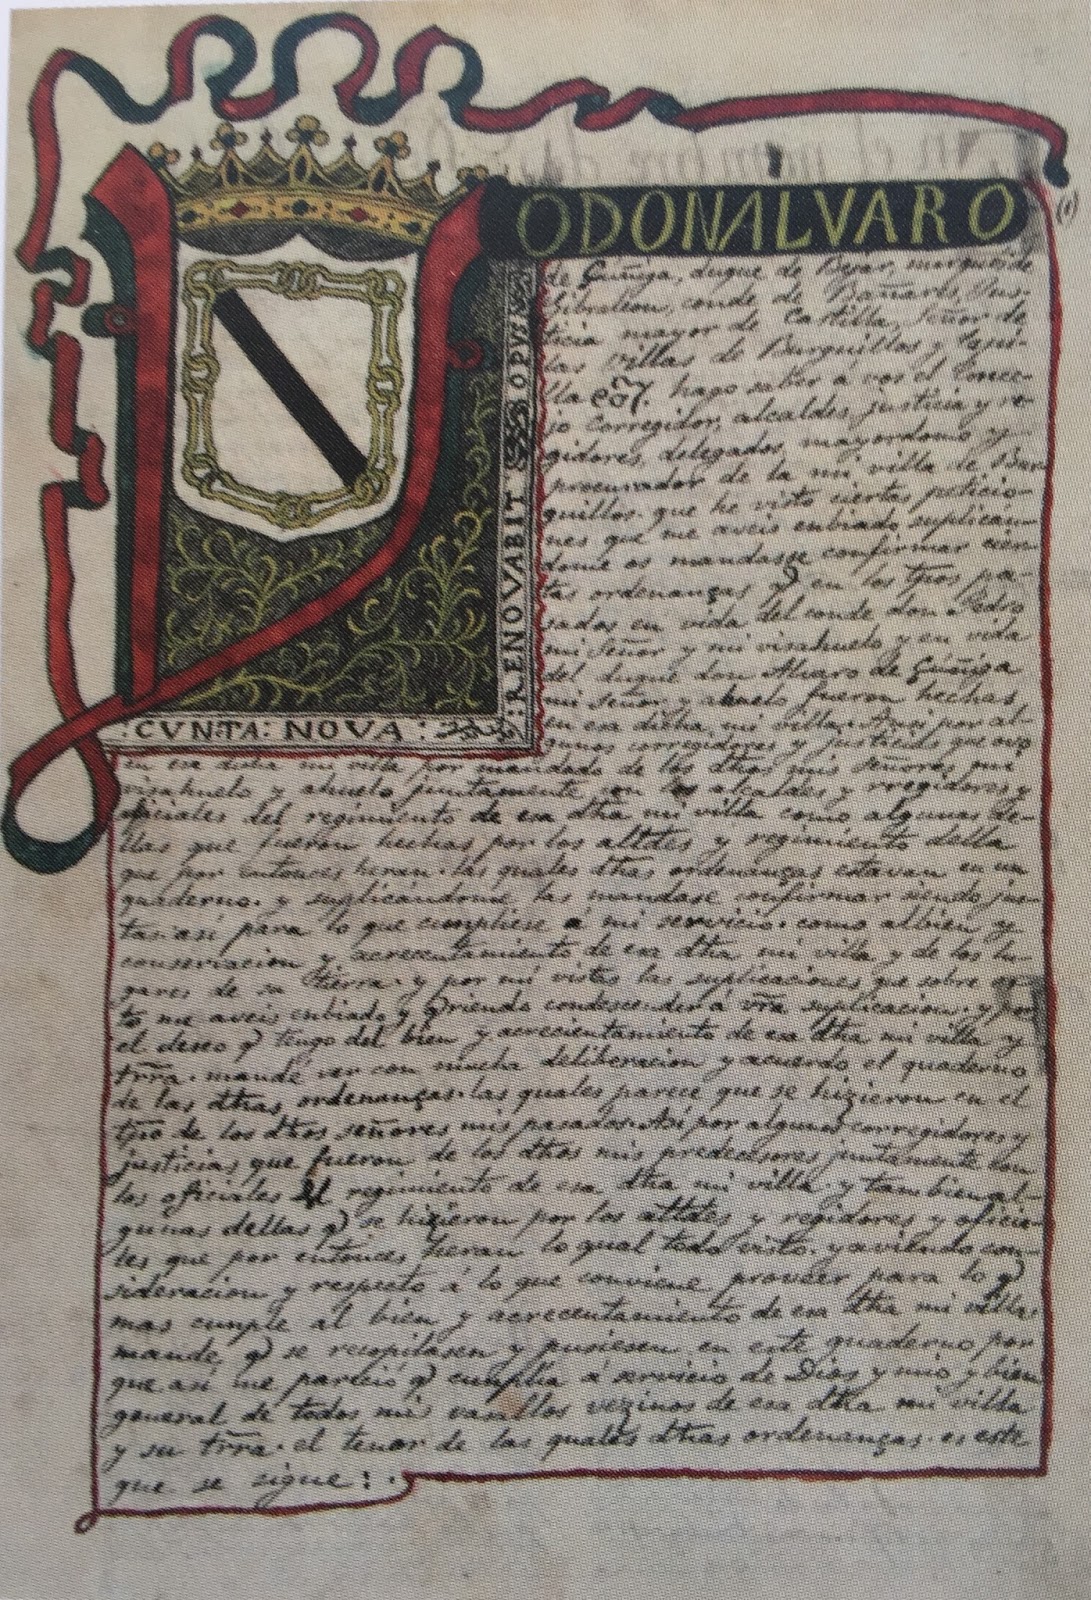 YO DON ALVARO
(1)
de Çúñiga, duque de Bejar, marques de
Gibraleon, conde de Bañares, Jus-
ticia mayor de Castilla, Señor de
las villas de Burguillos y Capi-
lla &c. hago saber a vos el Conce-
jo Corregidor, alcaldes, justicia y re-
gidores, delegados, mayordomo y
procurador de la mi villa de Bur
guillos. que he visto ciertas peticio-
nes que me aveis enbiado suplican-
dome os mandasse confirmar cier-
tas ordenanças q en los tpos pa-
sados en vida del conde don Pedro
mi Señor y mi visahuelo y en vida
del duque don Alvaro de Çúñiga
mi señor y abuelo fueron hechas
en esa dicha mi villa. Asi por al-
gunos corregidores y justicias que
en esa dicha mi villa por mandado de los dhos mis señores mi
visahuelo y ahuelo juntamente con los alcaldes y rregidores y
oficiales del regimiento de esa dha mi villa como algunas de-
llas que fueron hechas por los alldes y regimiento della
que por entonces heran. las quales dhas ordenanças estavan en un
quaderno. y suplicándome las mandase confirmar siendo jus-
tas: asi para lo que cumpliese á mi servicio. como albien y
conservacion y acrecentamiento de esa dha mi villa y de los lu-
gares de su tierra. y por mi vistas las suplicaciones que sobre es-
to me aveis enbiado y qriendo condescender a vra suplicacion. y por
el deseo q tengo del bien y acrecientamiento de esa dha mi villa y
trra. mandé ver con mucha deliberacion y acuerdo el quaderno
de las dhas ordenanças. las quales parece que se hizieron en el
tpo de los dhos señores mis pasados. Asi por algunos corregidores y
justicias que fueron de los dhos mis predecesores juntamente con
los oficiales del regimiento de esa dha mi villa. y tambien al-
gunas dellas q se hizieron por los alldes y regidores y oficia-
les que por entonces heran lo qual todo visto. y aviendo con-
sideracion y respecto á lo que conviene proveer para lo q
mas cumple al bien y acrecentamiento de esa dha mi villa
mande, q se recopilasen y pusiesen en este quaderno por
que asi me pareció q cumplia á servicio de Dios y mio y bien
general de todos mis vasallos vezinos de esa dha mi villa
y su trra. el tenor de las quales dhas ordenanças. es este
que se sigue:
CVNTA: NOVA:
RENOVABIT OPVS